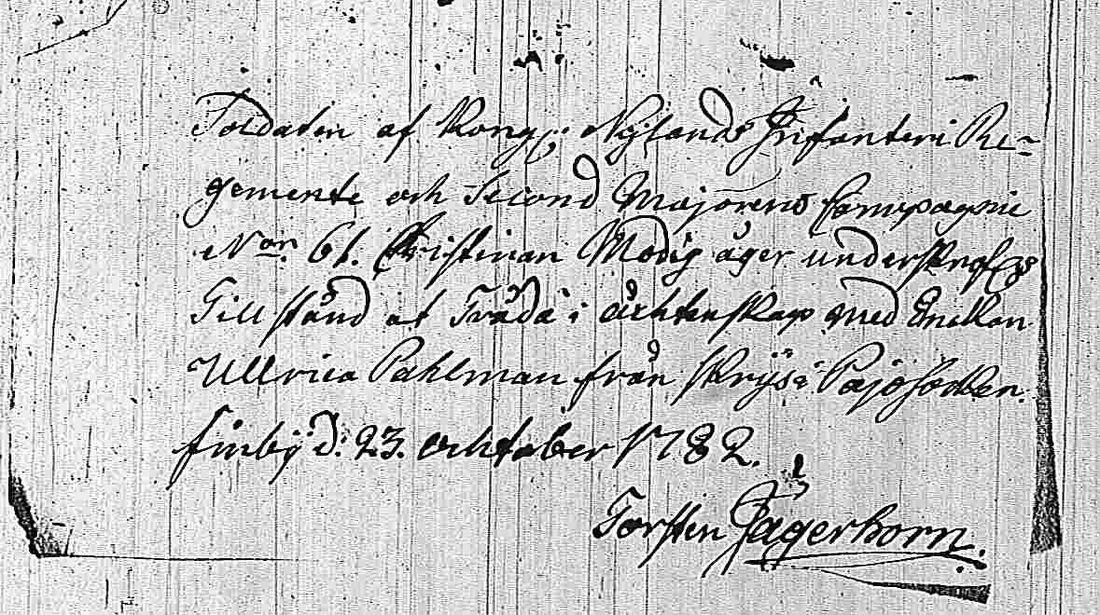 Soldaten af Kongl: Nylands Infanteri Re-
gemente och Second Majorens Compagnie
Nor. 61. Christian Modig äger underskrefs
Tillstånd at Träda i ächtenskap med Enckan
Ullrica Pahlman från i Pojo Socken.
finby d: 23. ochtober 1782.
Torsten Jägerhorn.